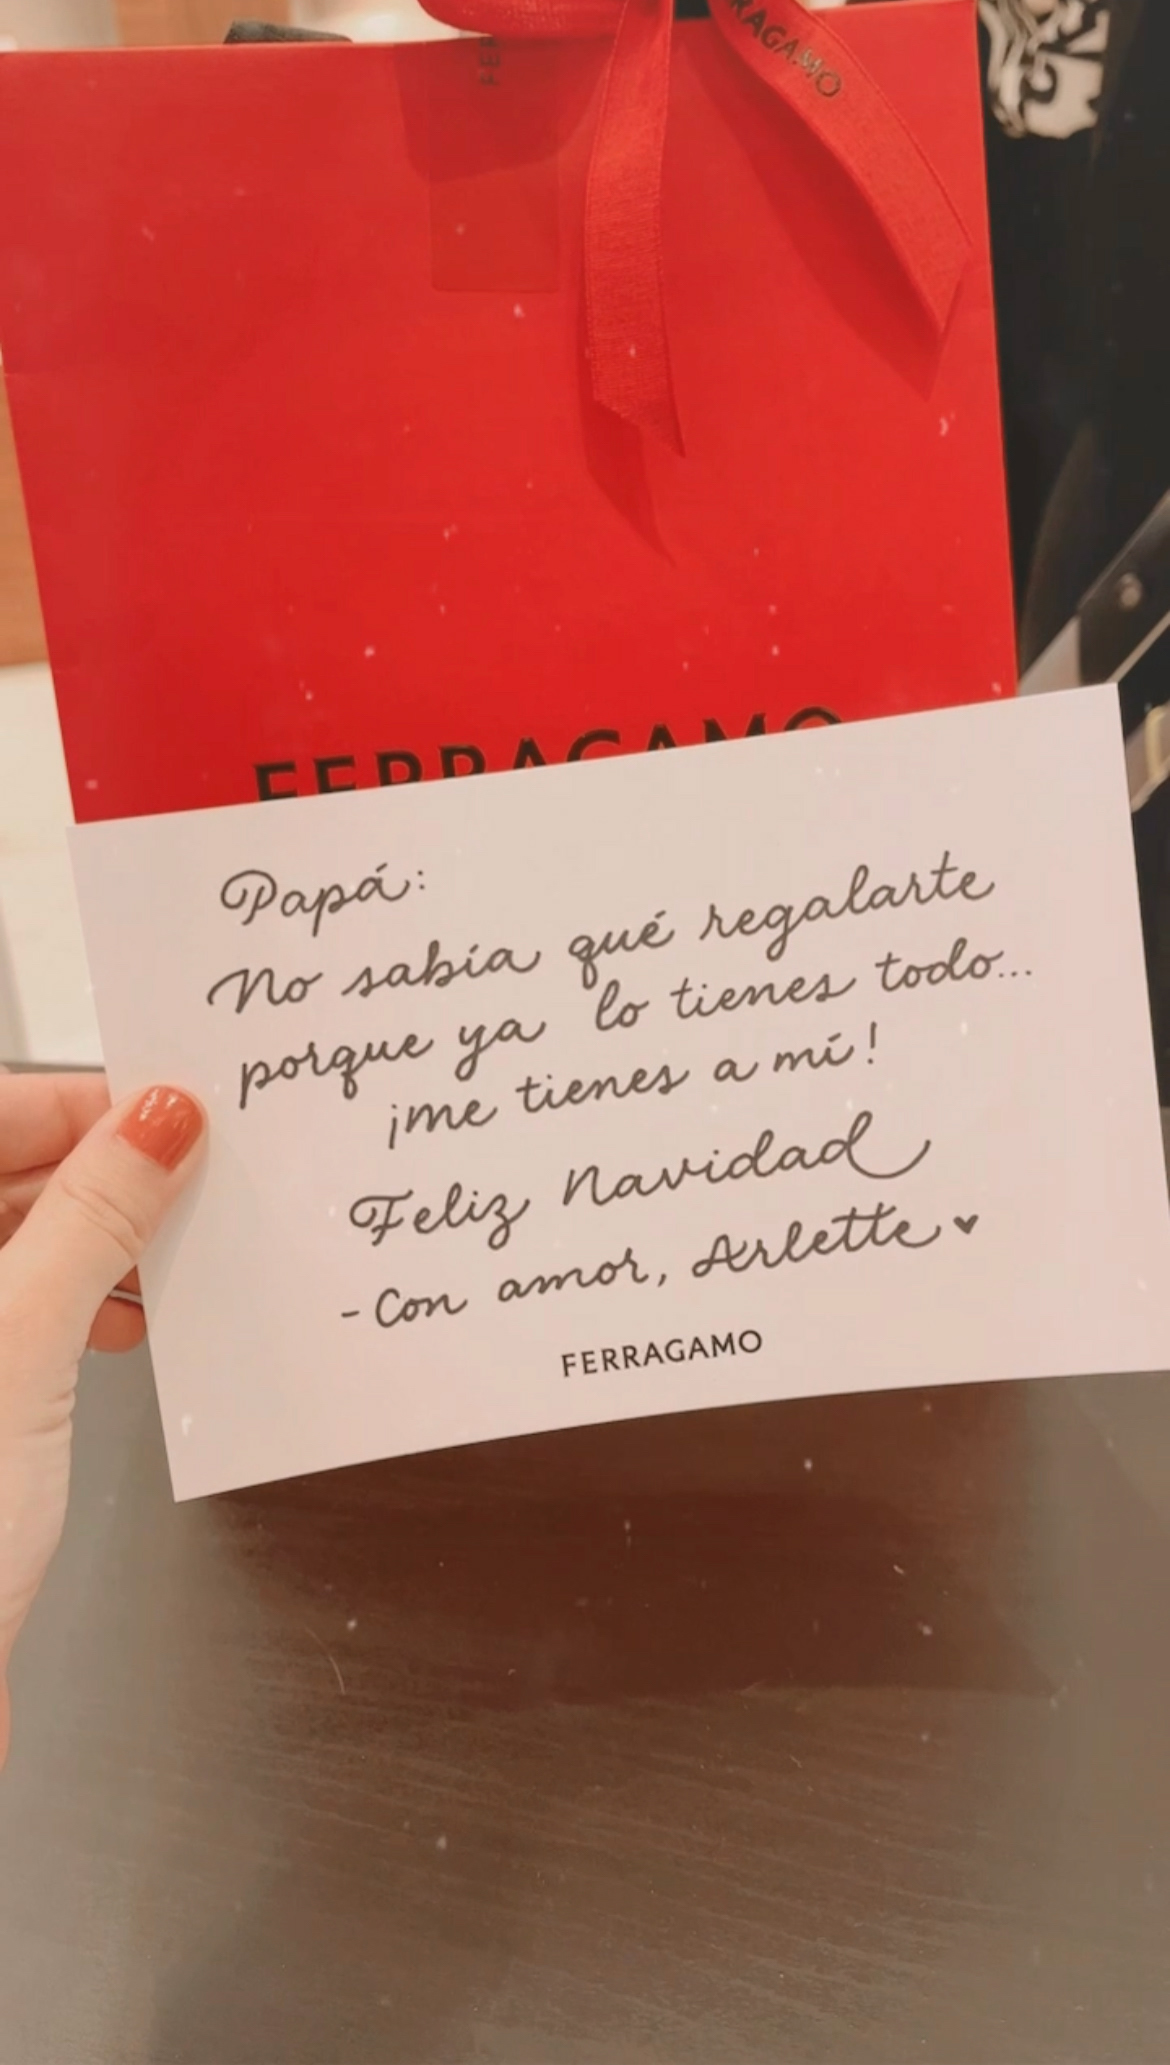 FER
RAGAMO
FERRAGAMO
Papá:
No sabía qué regalarte
porque ya lo tienes todo...
¡me tienes a mí!
Feliz Navidad
-Con amor, Arlette ♥
FERRAGAMO